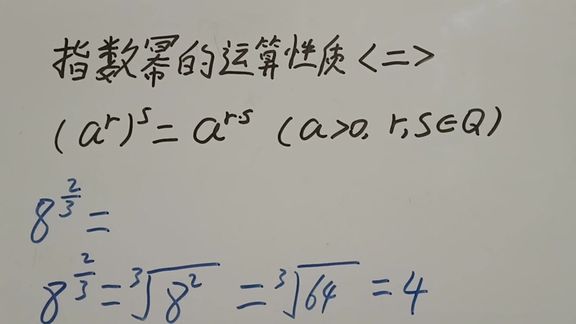 指数幂的运算性质<二>
(aʳ)ˢ = aʳ·ˢ (a>0, r,s∈Q)
8^(2/3) =
8^(2/3) = ³√(8²) = ³√64 = 4